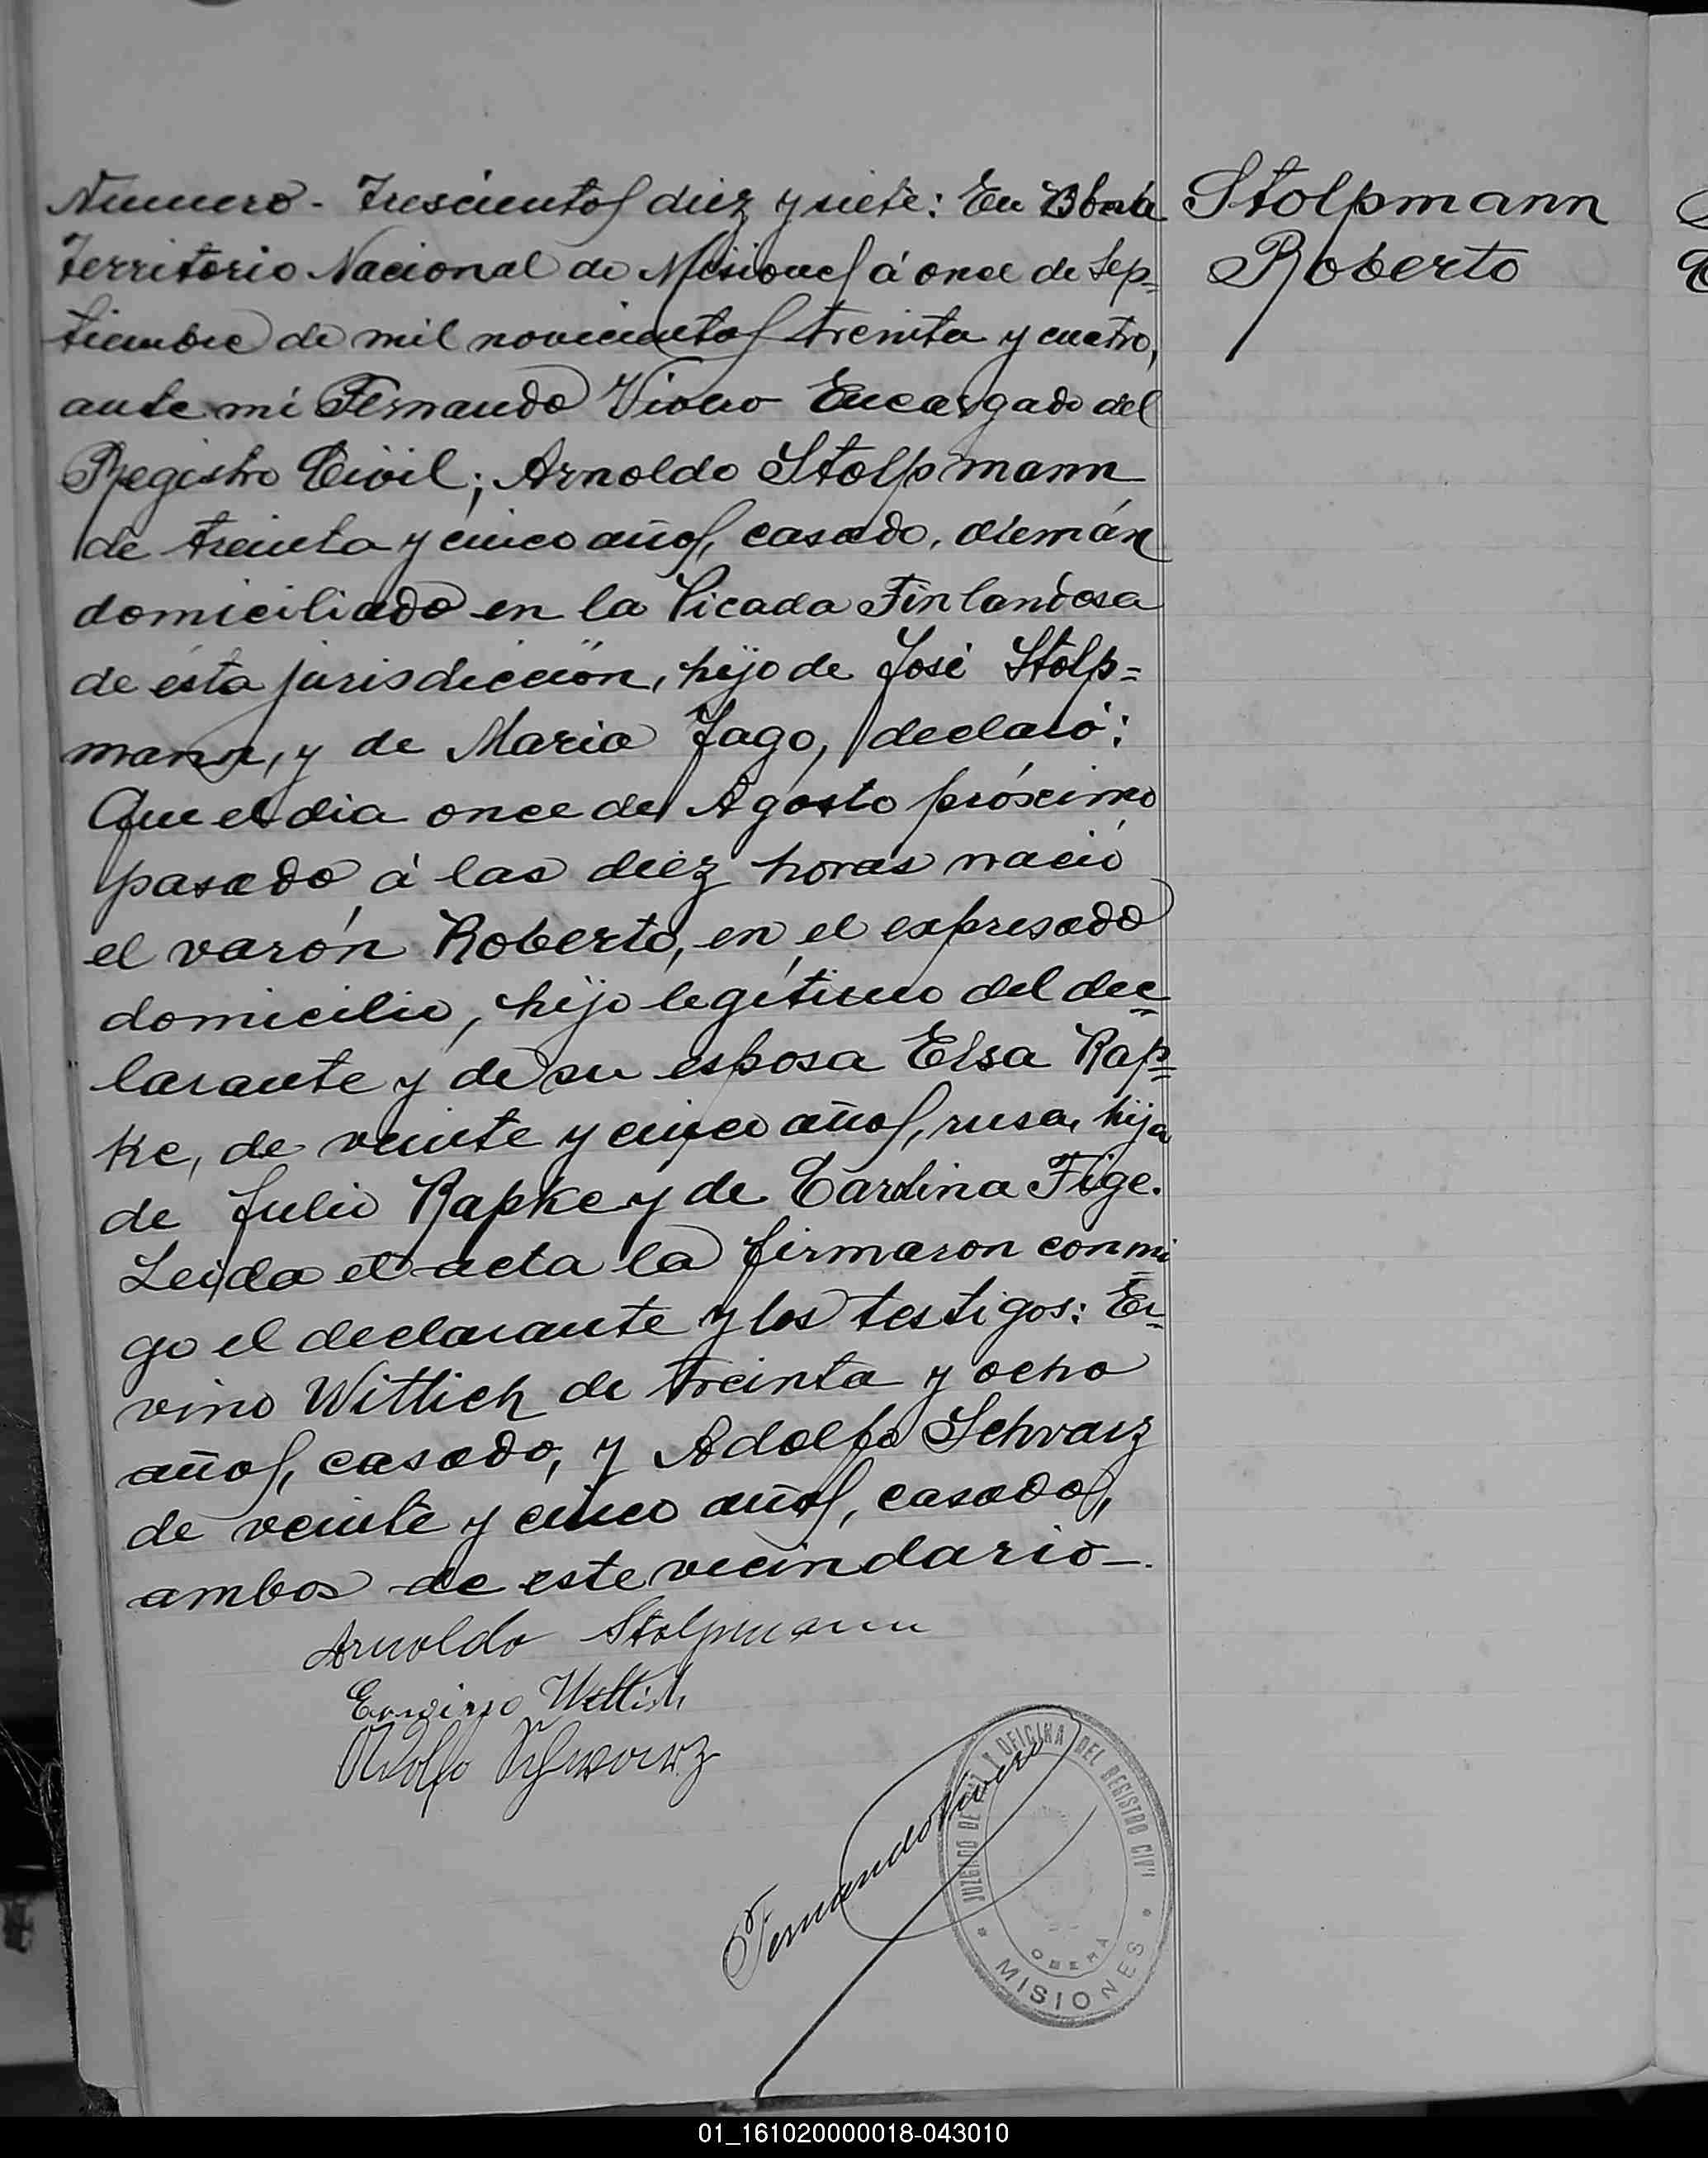 Número - Trescientos diez y siete: En
Stolpmann
Roberto
Territorio Nacional de Misiones á once de Sep=
tiembre de mil novecientos treinta y cuatro,
ante mi Fernando Encargado del
Registro Civil; Arnoldo Stolpmann
de treinta y cinco años, casado, alemán
domiciliado en la Picada Finlandesa
de ésta jurisdicción, hijo de José Stolp=
mann, y de Maria Jago, declaró:
Que el dia once de Agosto próximo
pasado á las diez horas nació
el varón Roberto, en el expresado
domicilio, hijo legítimo del dec=
larante y de su esposa Elsa Rap=
ke, de veinte y cinco años, rusa, hija
de Julio Rapke y de Carolina Fige.
Leida el acta la firmaron conmi
go el declarante y los testigos: Er=
vino Wittich de treinta y ocho
años, casado, y Adolfo Schvarz
de veinte y cinco años, casado,
ambos de este vecindario-.
Arnoldo Stolpmann
Erwino Wittich
Adolfo Schwarz
Fernando
JUZGADO DE PAZ Y OFICINA DEL REGISTRO CIVIL
OBERÁ
* MISIONES *
01_161020000018-043010